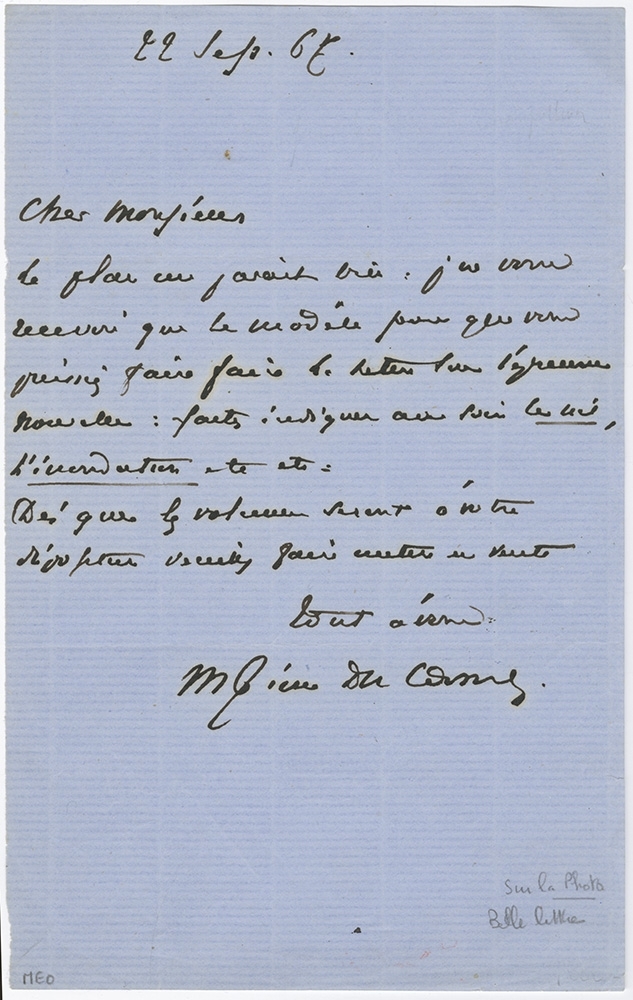 22 Sep. 67.
Cher Monsieur
Le plan me parait bien : je vous
que le modèle pour que vous
puissiez faire faire la lettre sur l'épreuve
nouvelle : faites indiquer au soin le nil,
l'inondation etc etc =
Dès que les volumes seront à votre
disposition veuillez faire mettre en vente
Tout à vous.
Maxime Du Camp.
Sur la Photo
Belle lettre
MEO